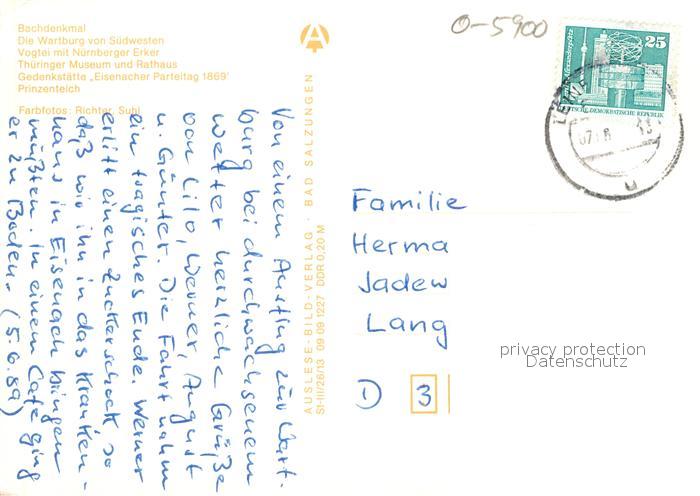 Bachdenkmal
Die Wartburg von Südwesten
Vogtei mit Nürnberger Erker
Thüringer Museum und Rathaus
Gedenkstätte „Eisenacher Parteitag 1869'
Prinzenteich
Farbfotos: Richter, Suhl
Von einem Ausflug zur Wart-
burg bei durchwachsenem
Wetter herzliche Grüße
von Lilo, Werner, August
u. Günter. Die Fahrt nahm
ein tragisches Ende. Werner
erlitt einen Zuckerschock, so
daß wir ihn in das Kranken-
haus in Eisenach bringen
mußten. In einem Café ging
er zu Boden. (5.6.89)
AUSLESE-BILD-VERLAG · BAD SALZUNGEN
St-III/26/13 09 09 1227 DDR 0,20 M
O-5900
25
DEUTSCHE DEMOKRATISCHE REPUBLIK
Familie
Herma
Jadew
Lang
D 3
privacy protection
Datenschutz